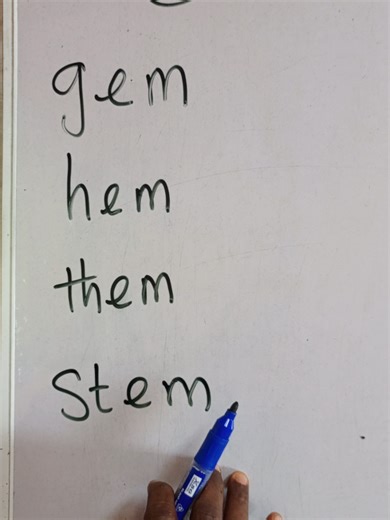 gem
hem
them
stem